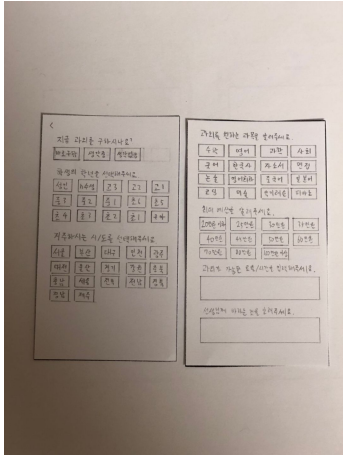 <
지금 과외를 구하시나요?
바로구함
학생의 학년을 선택해주세요
성인 N수생 고3 고2 고1
중3 중2 중1 초6 초5
초4 초3 초2 초1
거주하시는 시/도를 선택해주세요
서울 부산 대구 인천 광주
대전 울산 경기 강원 충북
충남 세종 전북 전남 경북
경남 제주
과외를 원하는 과목을 골라주세요
수학 영어 과학 사회
국어 한국사 자소서 면접
논술 중국어 일본어
코딩 미술
20만원 이하 25만원 30만원 35만원
40만원 45만원 50만원 60만원
70만원 80만원
과외가 가능한 요일/시간을 입력해주세요.
선생님께 바라는 점을